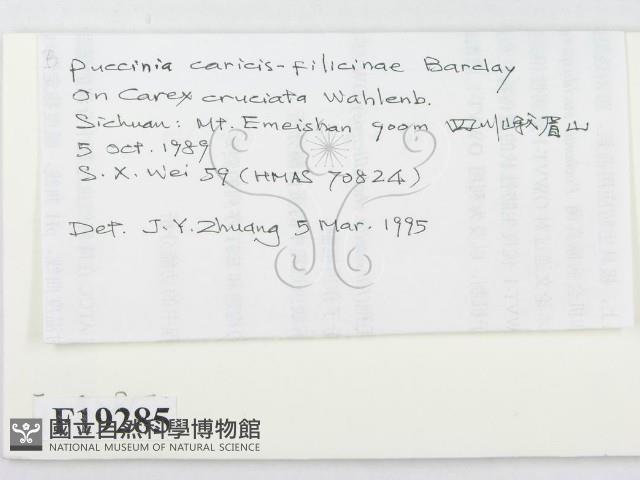 Puccinia caricis-filicinae Barclay
On Carex cruciata Wahlenb.
Sichuan: Mt. Emeishan 900m 四川峨眉山
5 Oct. 1989
S. X. Wei 59 (HMAS 70824)
Det. J. Y. Zhuang 5 Mar. 1995
F19285
國立自然科學博物館
NATIONAL MUSEUM OF NATURAL SCIENCE